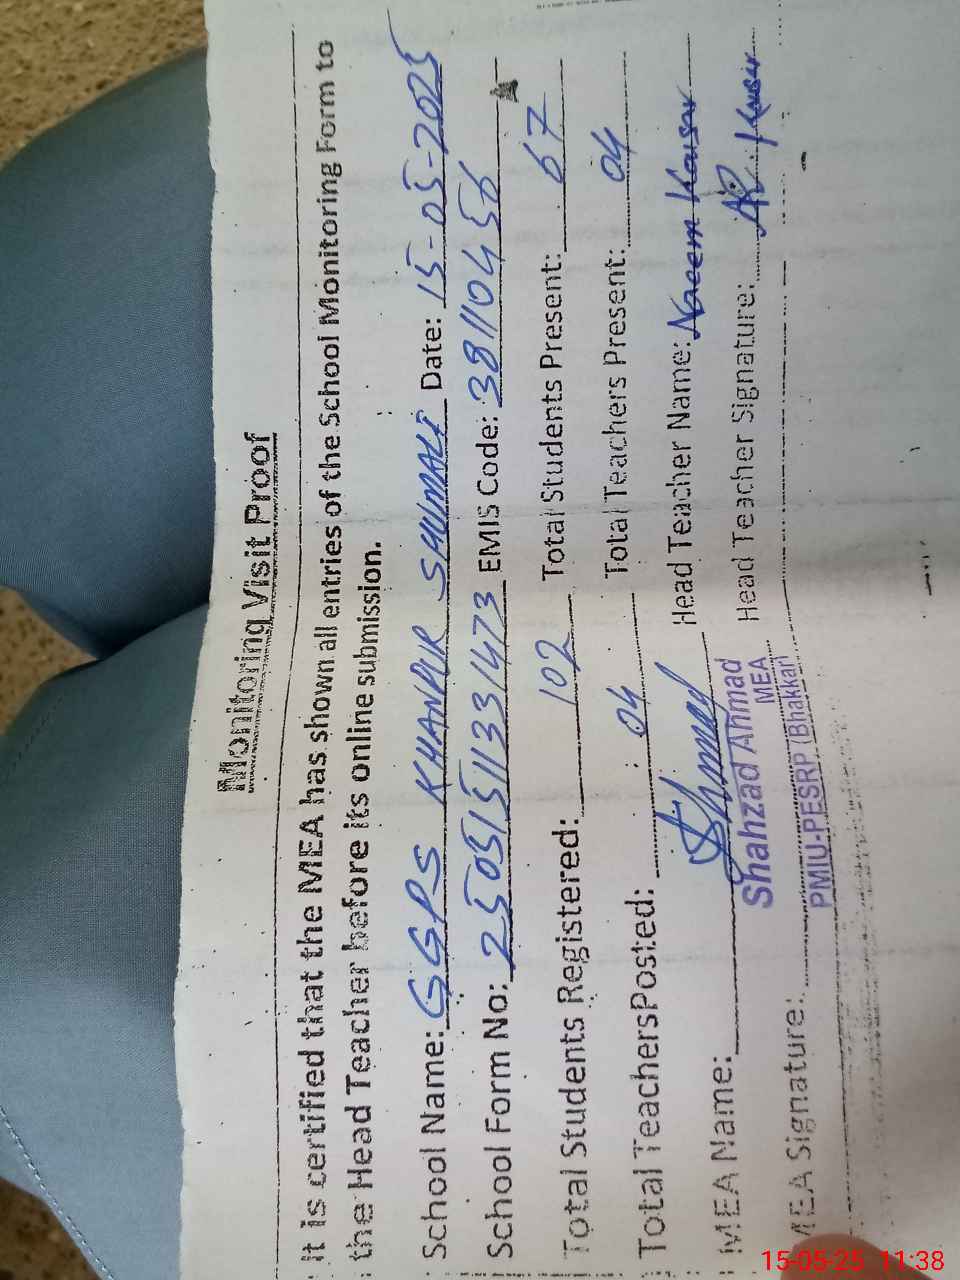 Monitoring Visit Proof
It is certified that the MEA has shown all entries of the School Monitoring Form to
the Head Teacher before its online submission.
School Name: GGPS KHANPUR SHUMALI Date: 15-05-2025
School Form No: 25051511331473 EMIS Code: 38110456
Total Students Registered: 102 Total Students Present: 67
Total TeachersPosted: 04 Total Teachers Present: 04
MEA Name: Head Teacher Name: Naeem Kausar
Shahzad Ahmad
MEA
PMIU-PESRP (Bhakkar)
MEA Signature: Head Teacher Signature: Kausar
15-05-25 11:38